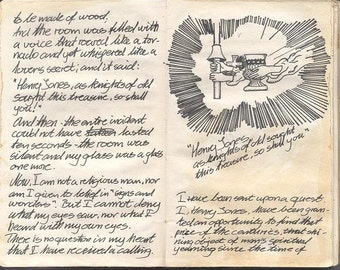 to be made of wood.
And the room was filled with
a voice that roared like a tor-
nado and yet whispered like a
lovers secret; and it said:
"Henry Jones, as knights of old
sought this treasure, so shall
you!"
And then the entire incident
could not have lasted
ten seconds - the room was
silent and my glass was a glass
once more.
Now, I am not a religious man, nor
am I given to belief in "signs and
wonders". But I cannot deny
what my eyes saw, nor what I
heard with my own eyes.
There is no question in my heart
that I have received a calling.
"Henry Jones,
as knights of old sought
this treasure, so shall you"
I have been sent upon a quest.
I, Henry Jones, have been gran-
ted an opportunity to find that
prize of the centuries, that shi-
ning object of man's spiritual
yearning since the time of